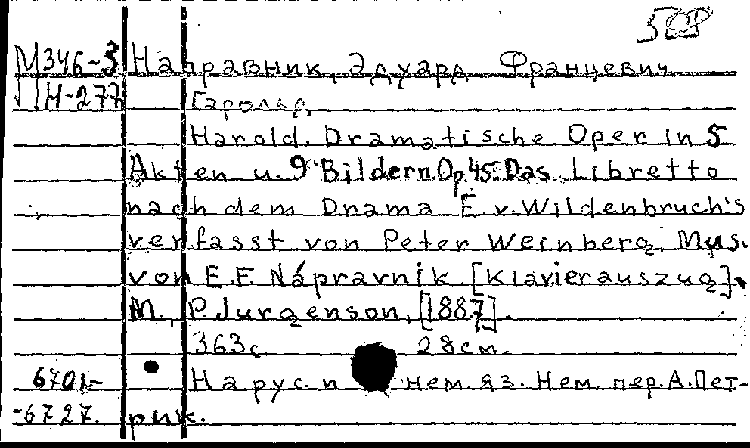 М346-3 Направник, Эдуард Францевич
Н-277 Гарольд
Harold. Dramatische Oper in 5
Akten u. 9 Bildern. Op. 45. Das Libretto
nach dem Drama E. v. Wildenbruch's
verfasst von Peter Weinberg. Mus.
von E. F. Nápravnik [Klavierauszug].
M., P. Jurgenson, [1887].
363 с. 28 см.
6701- На рус. и нем. яз. Нем. пер. А. Пет-
-6727. рик.